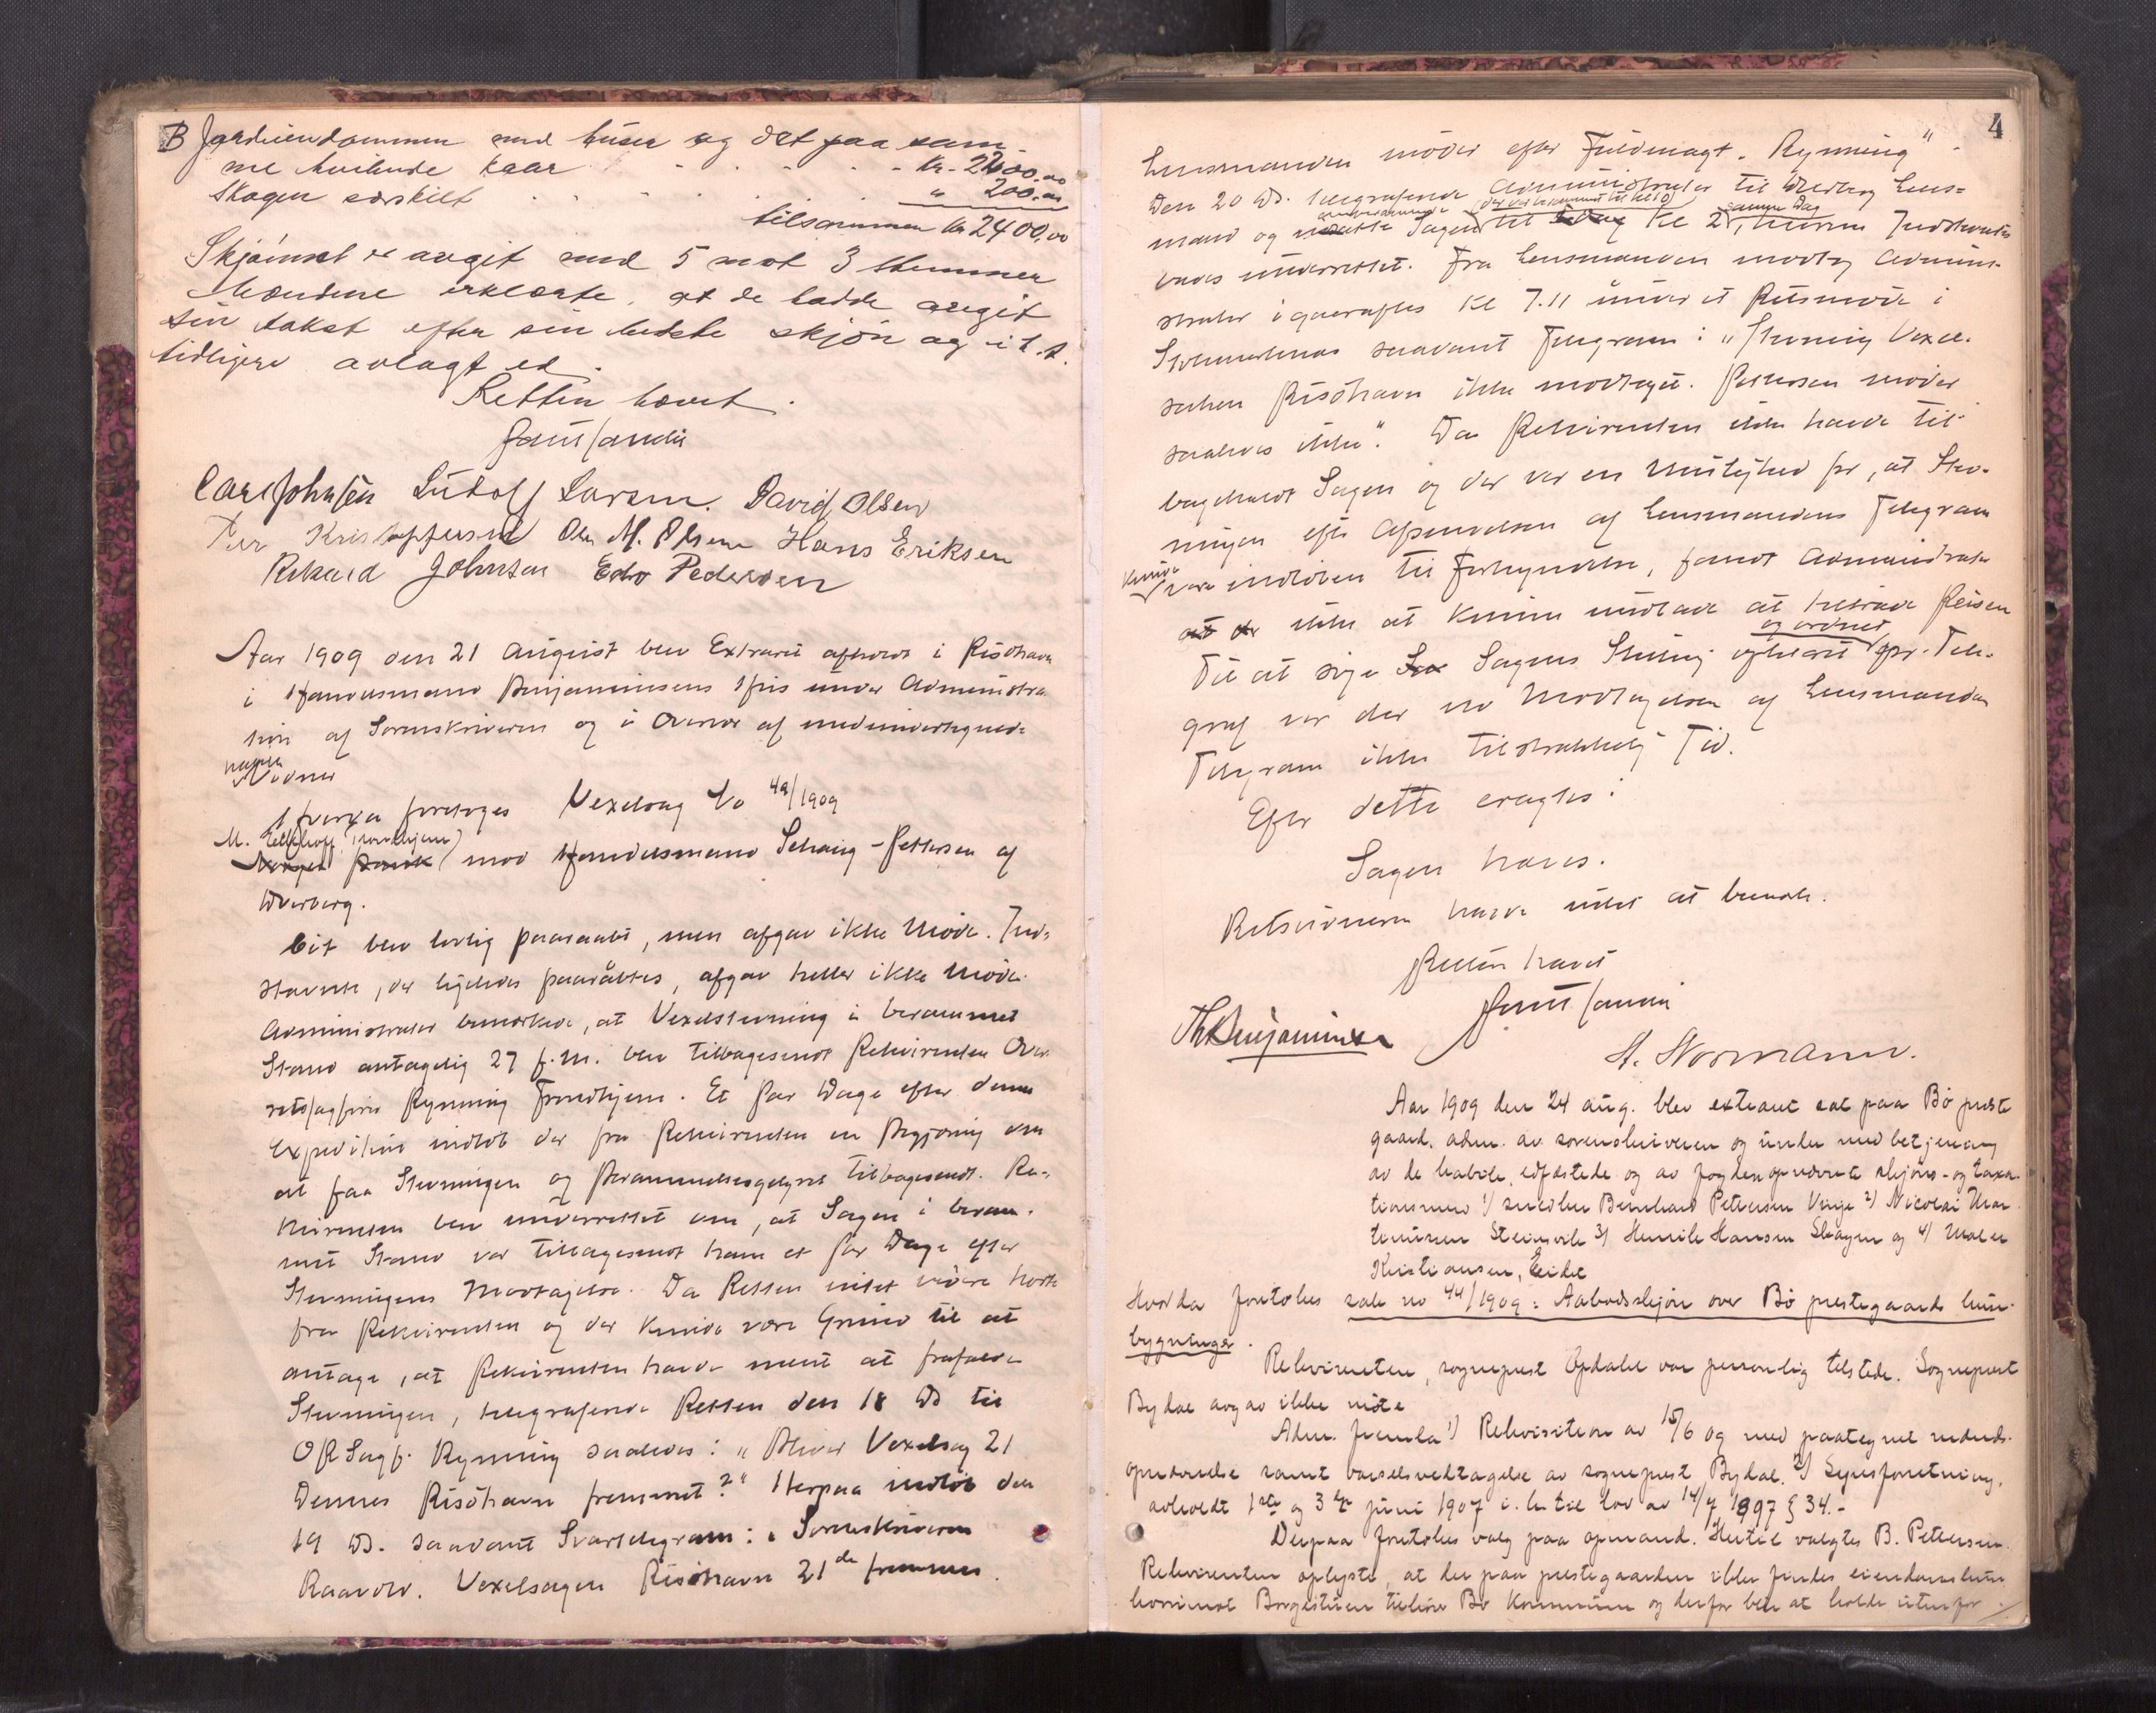 B Jordeiendommen med huser og det paa sam-
me hvilende kaar - - - - - kr. 2200.00
Skogen særskilt - - - - " 200.00
tilsammen kr 2400,00
Skjønnet er avgit med 5 mot 3 stemmer
Mændene erklærte, at de hadde avgit
sin takst efter sin bedste skjøn og i h.t.
tidligere avlagt ed.
Retten hævet.
Carl Johnsen Ludolf Larsen. David Olsen
Peer Kristoffersen Ole M. Olsen Hans Eriksen
Rikard Johnsen Edv Pedersen
Aar 1909 den 21 August blev Extraret afholdt i Risøhavn
i Handelsmand Benjaminsens Hus under Administra
tion af Sorenskriveren og i Overvær af medundertegnede
Vidner
Hvorda foretoges Vexelsag No 49/1909
M. (Trondhjem)
Norges Bank mod Handelsmand Schøug-Pettersen af
Dverberg.
Cit blev lovlig paaraabt, men afgav ikke Møde. Ind-
stævnte, der ligeledes paaraabtes, afgav heller ikke Møde.
Administrator bemærkede, at Vexelstevning i berammet
Stand antagelig 27 f.M. blev tilbagesendt Rekvirenten Over-
retssagfører Rynning Trondhjem. Et Par Dage efter denne
Expedition indløb der fra Rekvirenten en Begjæring om
at faa Stevningen og Berammelsesgebyret tilbagesendt. Re-
kvirenten blev underrettet om, at Sagen i beram-
met Stand var tilbagesendt ham et Par Dage efter
Stevningens Modtagelse. Da Retten intet videre hørte
fra Rekvirenten og der kunde være Grund til at
antage, at Rekvirenten havde ment at frafalde
Stevningen, telegraferede Retten den 18 ds til
ORSagf. Rynning saaledes: "Bliver Vexelsag 21
Dennes Risøhavn fremmet?" Herpaa indløb den
19 ds. saadant Svartelegram: "Sorenskriveren
Vexelsagen Risøhavn 21de fremmes.
4
Lensmanden møder efter Fuldmagt. Rynning" -
Den 20 ds. telegraferede Administrator til Dverberg Lens-
(der var berammet til kl 10) samme Dag
mand og Sagen til kl 2, hvorom Indstevnte
bedes underrettet. Fra Lensmanden modtog Admini-
strator igaaraftes kl 7.11 under et Retsmøde i
Stokmarknes saadant Telegram: "Stevning Vexel-
saken Risøhavn ikke modtaget. Pettersen møder
saaledes ikke". Da Rekvirenten ikke havde til-
bagekaldt Sagen og der var en Mulighed for, at Stev-
ningen efter Afsendelsen af Lensmandens Telegram
kunde
være indløben til Forkyndelse, fandt Administrator
at der ikke at kunne undlade at tiltræde Reisen
og ordnet
Til at søge Sagens Stilling opklaret pr. Tele-
graf var der ved Modtagelsen af Lensmandens
Telegram ikke tilstrækkelig Tid.
Efter dette eragtes:
Sagen hæves.
Retsvidnerne havde intet at bemærke.
Retten hævet
Th Benjaminsen
A. Normann.
Aar 1909 den 24 aug. blev extraret sat paa Bø preste
gaard, adm. av sorenskriveren og under med betjening
av de habile, edfæstede og av fogden opnævnte skjøns- og taxa-
tionsmænd 1) snedker Bernhard Pettersen Vinje 2) Nicolai Mar
tinusen Steinsvik 3) Henrik Hansen Skagen og 4)
Kristiansen, Eidet
Hvorda foretokes sak no 44/1909: Aabodsskjøn over Bø prestegaards hus-
bygninger.
Rekvirenten, sogneprest Opdahl var personlig tilstede. Sogneprest
Bydal avgav ikke møte
Adm. fremla 1) Rekvisition av 15/6 og med paategnet mænds-
opnævnelse samt varselsvedtagelse av sogneprest Bydal. 2) Synsforretning,
avholdt 1ste og 3dje juni 1907 i. h. til lov av 14/7 1897 § 34. -
Derpaa foretokes valg paa opmand. Hertil valgtes B. Pettersen.
Rekvirenten oplyste, at der paa prestegaarden ikke findes eiendomshus
hvorimot Borgestuen tilhører Bø Kommune og derfor blir at holde utenfor